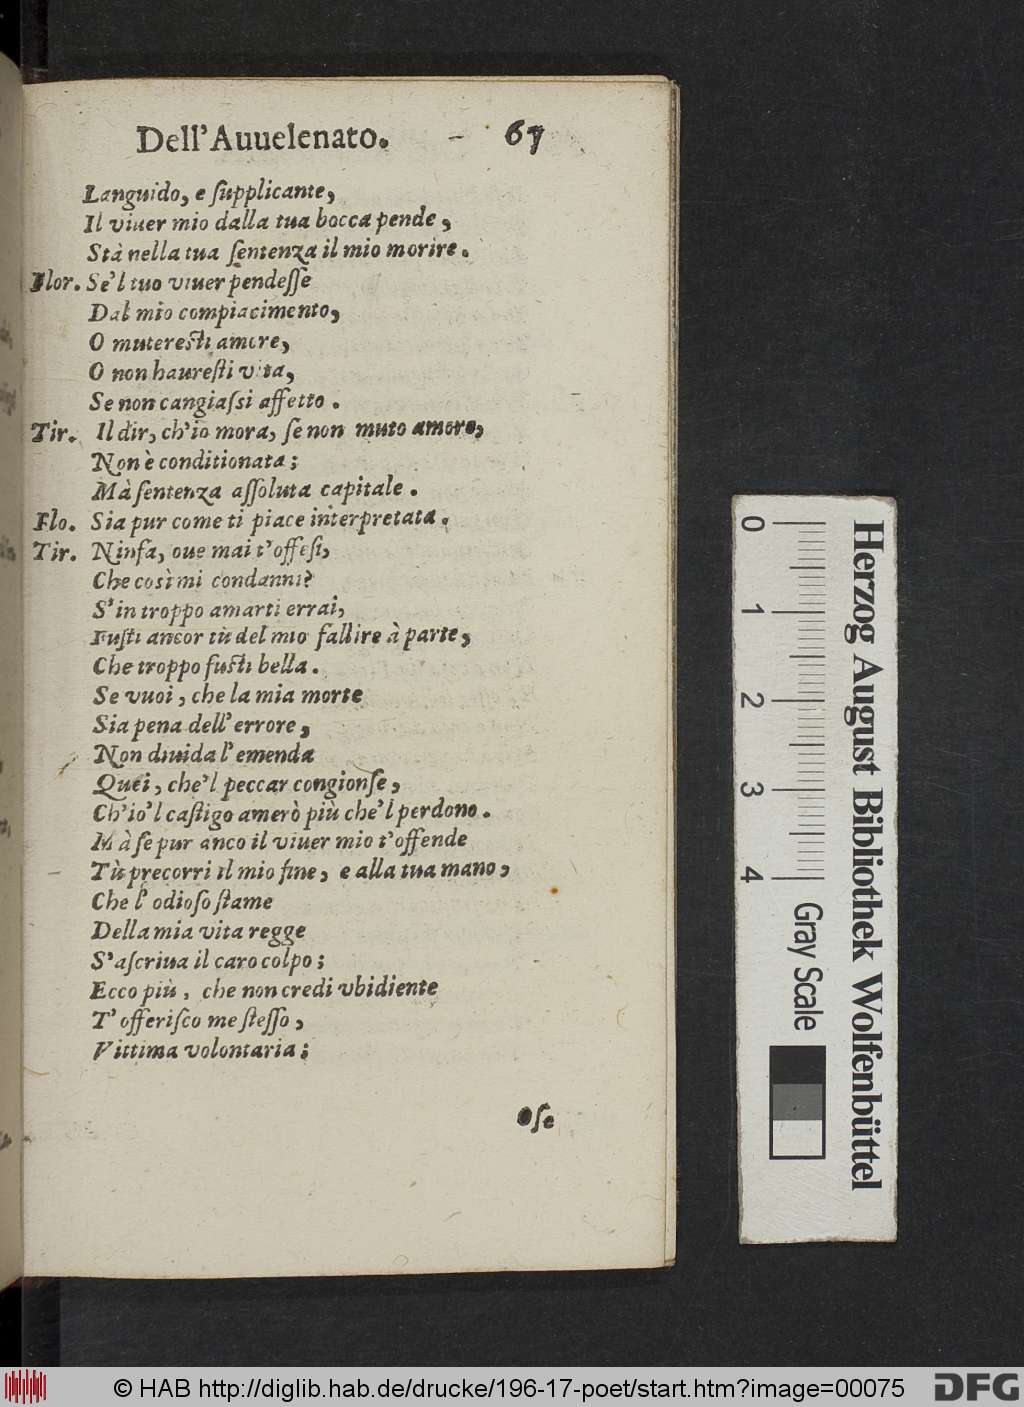 Dell'Auuelenato. 67
Languido, e ſupplicante,
Il viuer mio dalla tua bocca pende,
Stà nella tua ſentenza il mio morire.
Flor. Se'l tuo viuer pendeſſe
Dal mio compiacimento,
O muteresti amore,
O non haureſti vita,
Se non cangiaſsi affetto.
Tir. Il dir, ch'io mora, ſe non muto amore,
Non è conditionata;
Mà ſentenza aſſoluta capitale.
Flo. Sia pur come ti piace interpretata.
Tir. Ninfa, oue mai t'offeſi,
Che così mi condanni?
S'in troppo amarti errai,
Fuſti ancor tù del mio fallire à parte,
Che troppo fusti bella.
Se vuoi, che la mia morte
Sia pena dell'errore,
Non diuida l'emenda
Quei, che'l peccar congionſe,
Ch'io'l caſtigo amerò più che'l perdono.
Mà ſe pur anco il viuer mio t'offende
Tù precorri il mio fine, e alla tua mano,
Che l'odioſo ſtame
Della mia vita regge
S'aſcriua il caro colpo;
Ecco più, che non credi vbidiente
T'offeriſco me ſteſſo,
Vittima volontaria;
Oſe
0 1 2 3 4
Gray Scale
Herzog August Bibliothek Wolfenbüttel
© HAB http://diglib.hab.de/drucke/196-17-poet/start.htm?image=00075
DFG